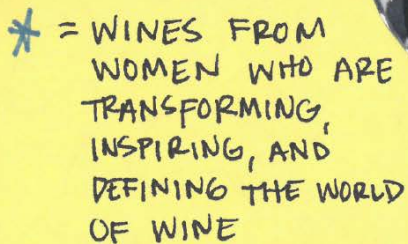 * = WINES FROM
WOMEN WHO ARE
TRANSFORMING,
INSPIRING, AND
DEFINING THE WORLD
OF WINE